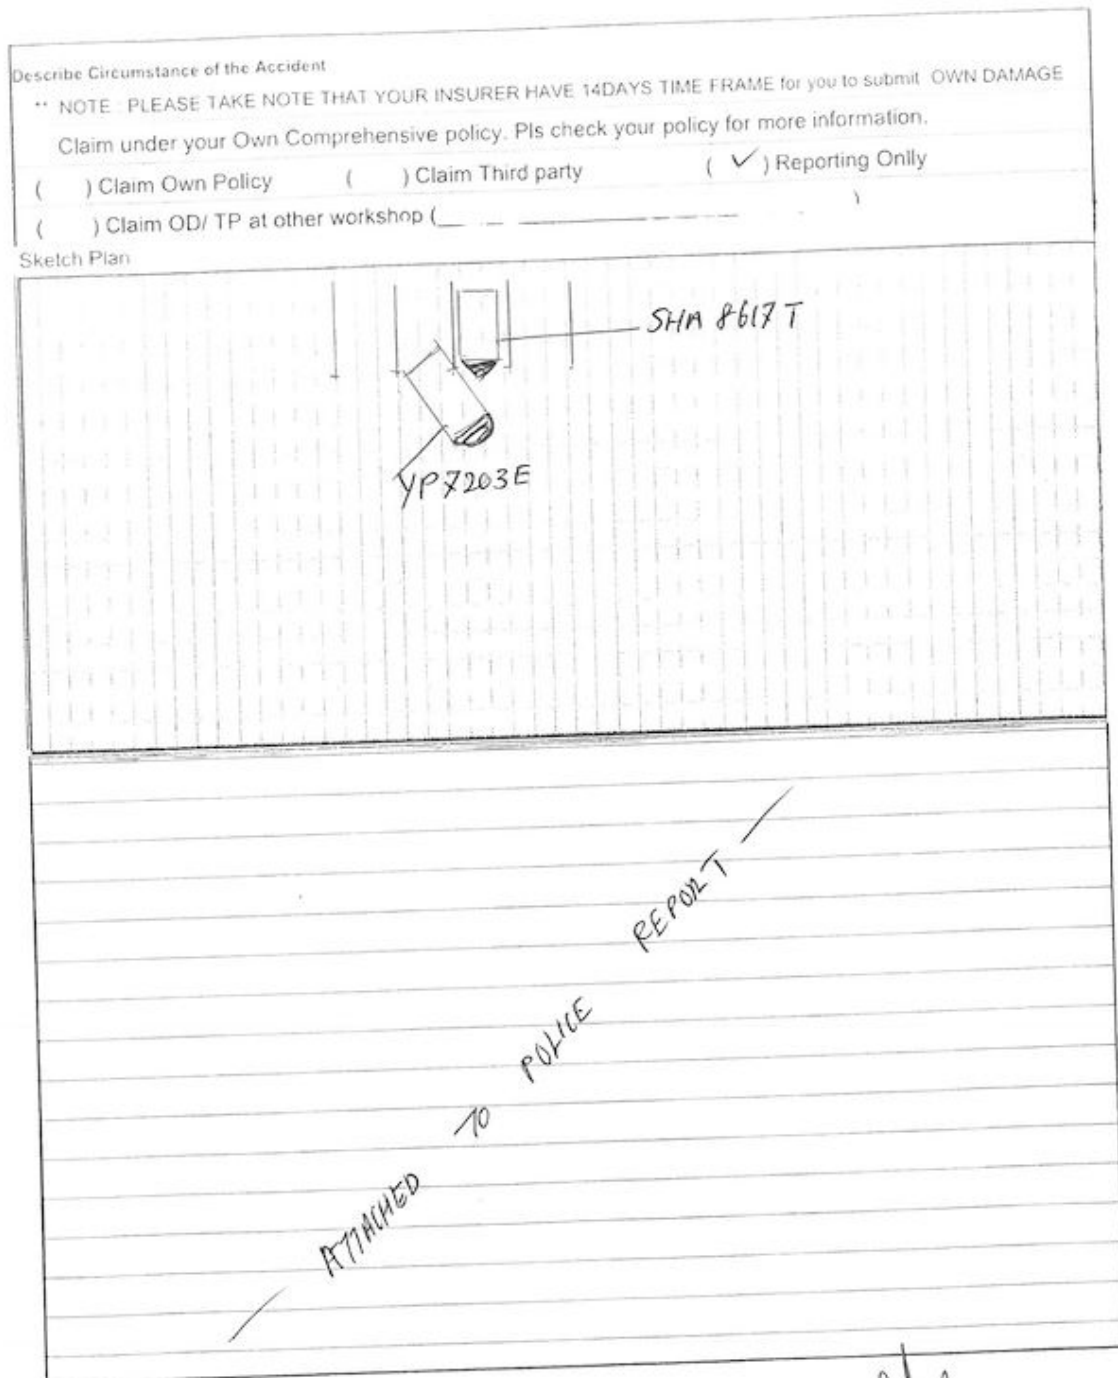 Describe Circumstance of the Accident
** NOTE : PLEASE TAKE NOTE THAT YOUR INSURER HAVE 14DAYS TIME FRAME for you to submit OWN DAMAGE
Claim under your Own Comprehensive policy. Pls check your policy for more information.
( ) Claim Own Policy ( ) Claim Third party ( ✓ ) Reporting Onlly
( ) Claim OD/ TP at other workshop (_ _ _____ ___ )
Sketch Plan
SHA 8617T
YP7203E
ATTACHED TO POLICE REPORT